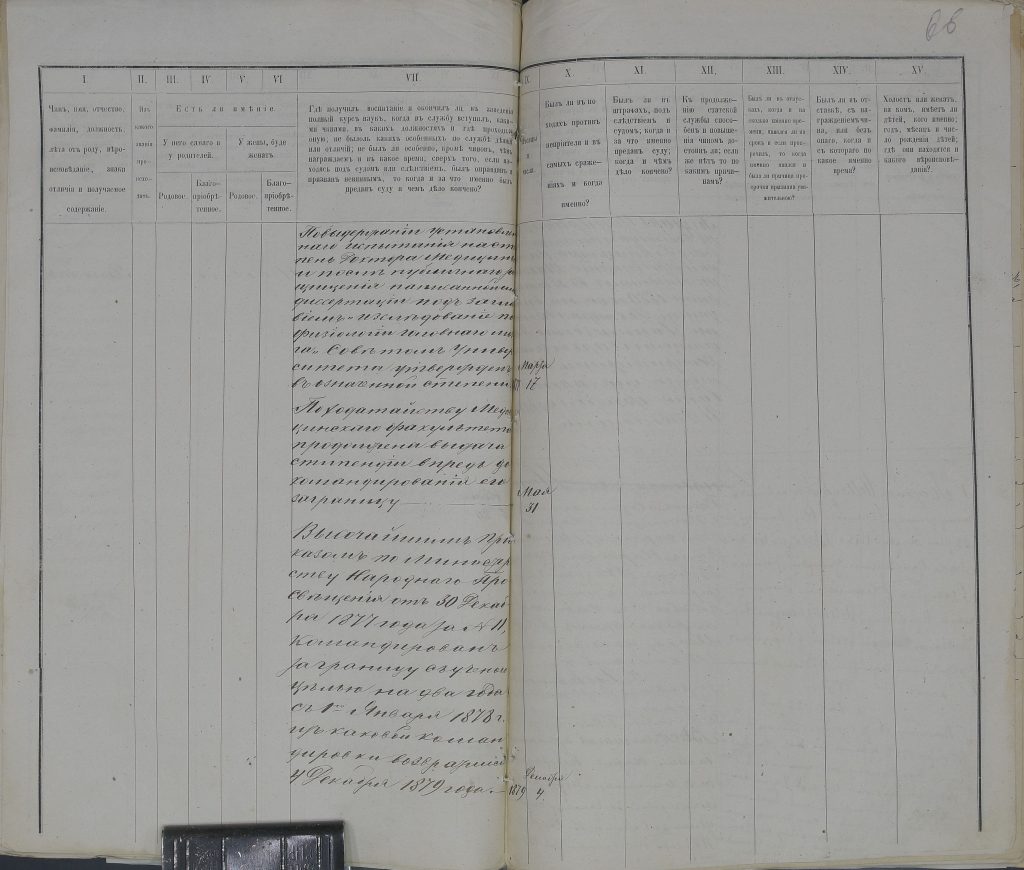 66
I.
II.
III.
IV
V.
VI
VII
IX
X.
XI.
XII.
XIII.
XIV.
XV.
Чинъ, имя, отчество,
фамилія, должность,
лѣта отъ роду, вѣро-
исповѣданіе, знаки
отличія и получаемое
содержаніе.
Изъ
какого
званія
про-
исхо-
дитъ.
Есть ли имѣніе.
У него самаго и
у родителей.
У жены, буде
женатъ.
Родовое.
Благо-
пріобрѣ-
тенное.
Родовое.
Благо-
пріобрѣ-
тенное.
Гдѣ получилъ воспитаніе и окончилъ ли въ заведеніи
полный курсъ наукъ, когда въ службу вступилъ, каки-
ми чинами, въ какихъ должностяхъ и гдѣ проходилъ
оную, не было ль какихъ особенныхъ по службѣ дѣяній
или отличій; не былъ ли особенно, кромѣ чиновъ, чѣмъ
награждаемъ и въ какое время; сверхъ того, если на-
ходясь подъ судомъ или слѣдствіемъ, былъ оправданъ и
признанъ невиннымъ, то когда и за что именно былъ
преданъ суду и чѣмъ дѣло кончено?
Былъ ли въ по-
ходахъ противъ
непріятеля и въ
самыхъ сраже-
ніяхъ и когда
именно?
Былъ ли въ
штрафахъ, подъ
слѣдствіемъ и
судомъ, когда и
за что именно
преданъ суду;
когда и чѣмъ
дѣло кончено?
Къ продолже-
нію статской
службы спосо-
бенъ и повыше-
нія чиномъ до-
стоинъ ли; если
же нѣтъ то по
какимъ причи-
намъ?
Былъ ли въ отпус-
кахъ, когда и на
сколько именно вре-
мени; являлся ли на
срокъ и если про-
срочилъ, то когда
именно явился и
была ли причина про-
срочки признана ува-
жительною?
Былъ ли въ от-
ставкѣ, съ на-
гражденіемъ чи-
на, или безъ
онаго, когда и
съ котораго по
какое именно
время?
Холостъ или женатъ,
на комъ, имѣетъ ли
дѣтей, кого именно;
годъ, мѣсяцъ и чис-
ло рожденія дѣтей;
гдѣ они находятся и
какого вѣроисповѣ-
данія?
По выдержаніи установлен
наго испытанія на сте
пень Доктора Медицины
и послѣ публичнаго за
щищенія написанной имъ
диссертаціи подъ загла
віемъ „Изслѣдованіе по
физіологіи головнаго моз
га“ Совѣтомъ Универ
ситета утвержденъ
въ означенной степени
Марта
17
По ходатайству Меди
цинскаго факультета
продолжена выдача
стипендіи впредь до
командированія его
заграницу
Мая
31
Высочайшимъ При
казомъ по Министер
ству Народнаго Про
свѣщенія отъ 30 Декаб
ря 1877 года за № 11,
командированъ
заграницу съ ученой
цѣлью на два года
съ 1го Января 1878 г.
изъ каковой коман
дировки возвратился
4 Декабря 1879 года.
1879
Декабря
4.